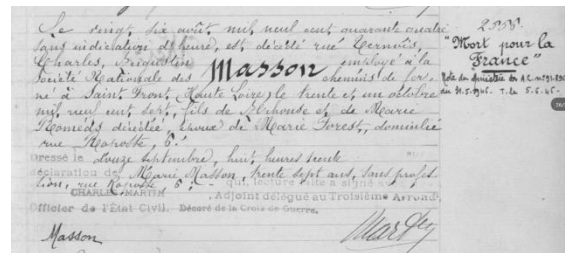 Le vingt six août mil neuf cent quarante quatre
sans indication d'heure, est décédé rue
Charles, employé à la
Masson
Société Nationale des chemins de fer,
né à Saint Front Haute Loire, le trente et un octobre
mil neuf cent sept, fils de et de Marie
décédée, époux de Marie Forest, domicilié
rue 6.
Dressé le douze septembre, huit heures trente sur
déclaration de Marie Masson, trente sept ans, sans profes-
sion, rue 6. qui, lecture faite a signé
CHARLES MARTIN , Adjoint délégué au Troisième Arrond.
Officier de l'État Civil. Décoré de la Croix de Guerre.
Masson
"Mort pour la
France"